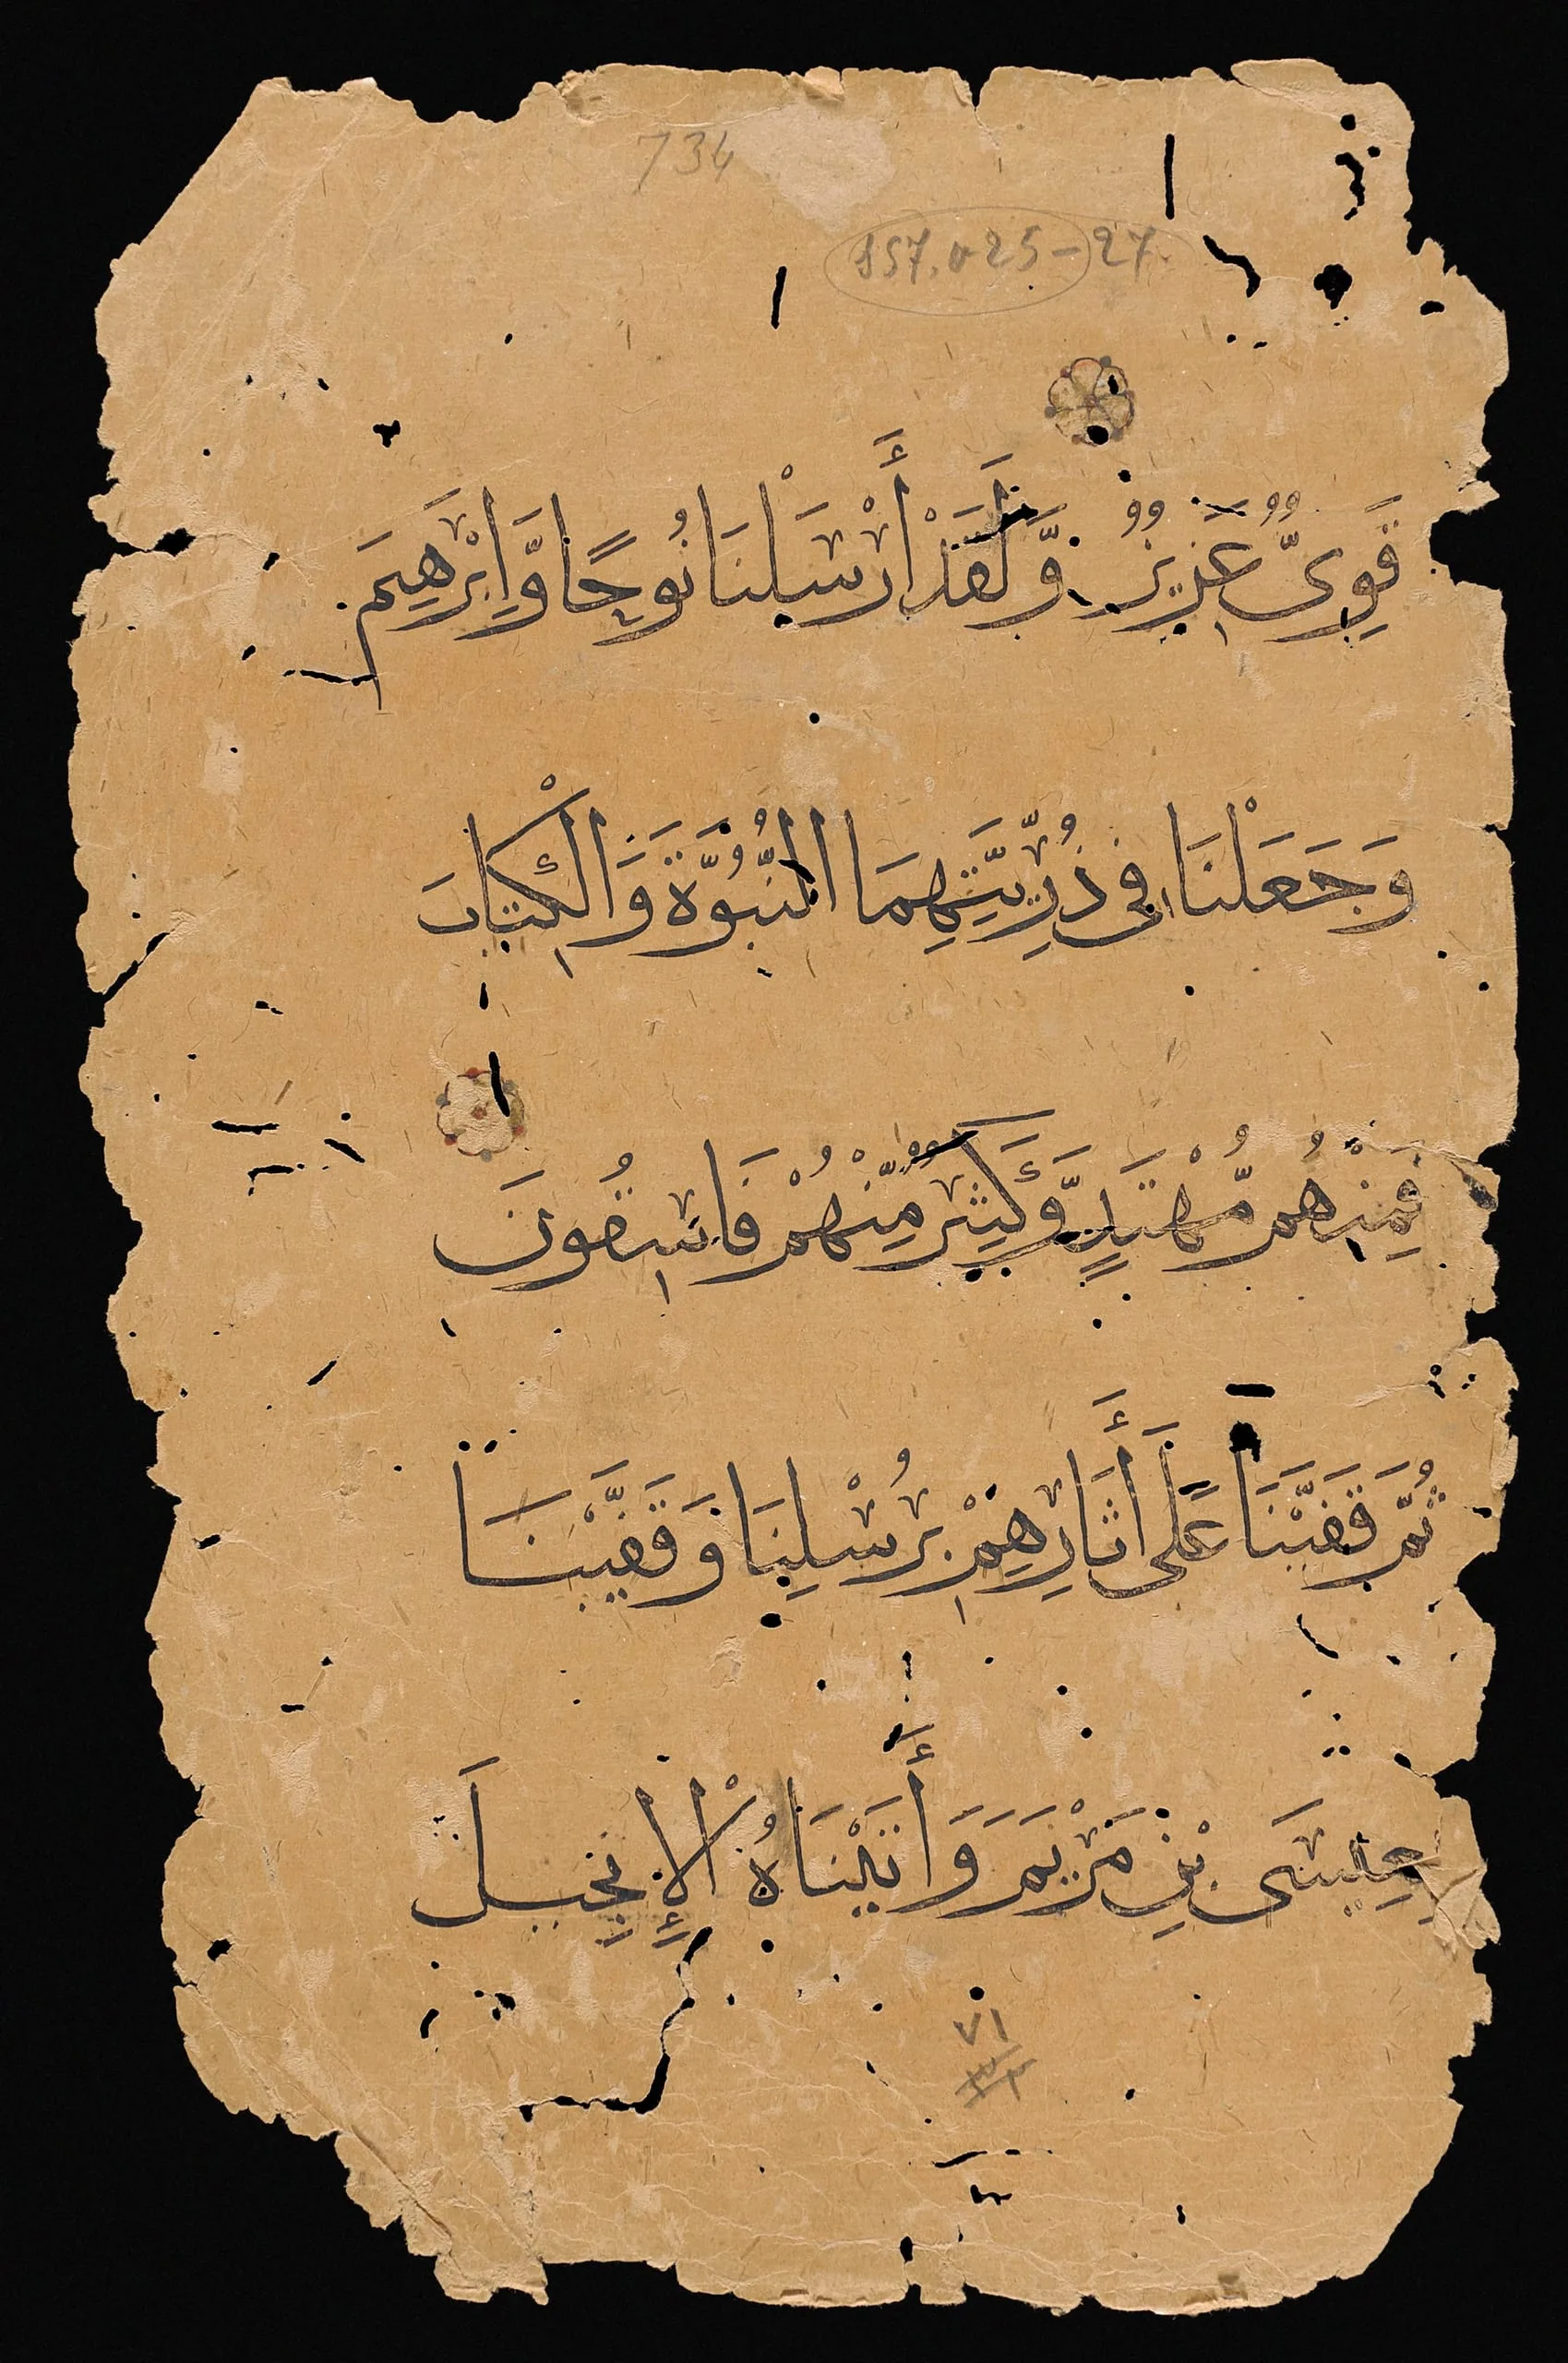 734
157.025-27
قَوِىٌّ عَزِيزٌ وَّلَقَدْ أَرْسَلْنَا نُوحًا وَّإِبْرَهِيمَ
وَجَعَلْنَا فِى ذُرِّيَّتِهِمَا النُّبُوَّةَ وَالْكِتَابَ
فَمِنْهُم مُّهْتَدٍ وَّكَثِيرٌ مِّنْهُمْ فَاسِقُونَ
ثُمَّ قَفَّيْنَا عَلَى أَثَارِهِمْ بِرُسُلِنَا وَقَفَّيْنَا
بِعِيسَى بْنِ مَرْيَمَ وَأَتَيْنَاهُ الْإِنْجِيلَ
٧١